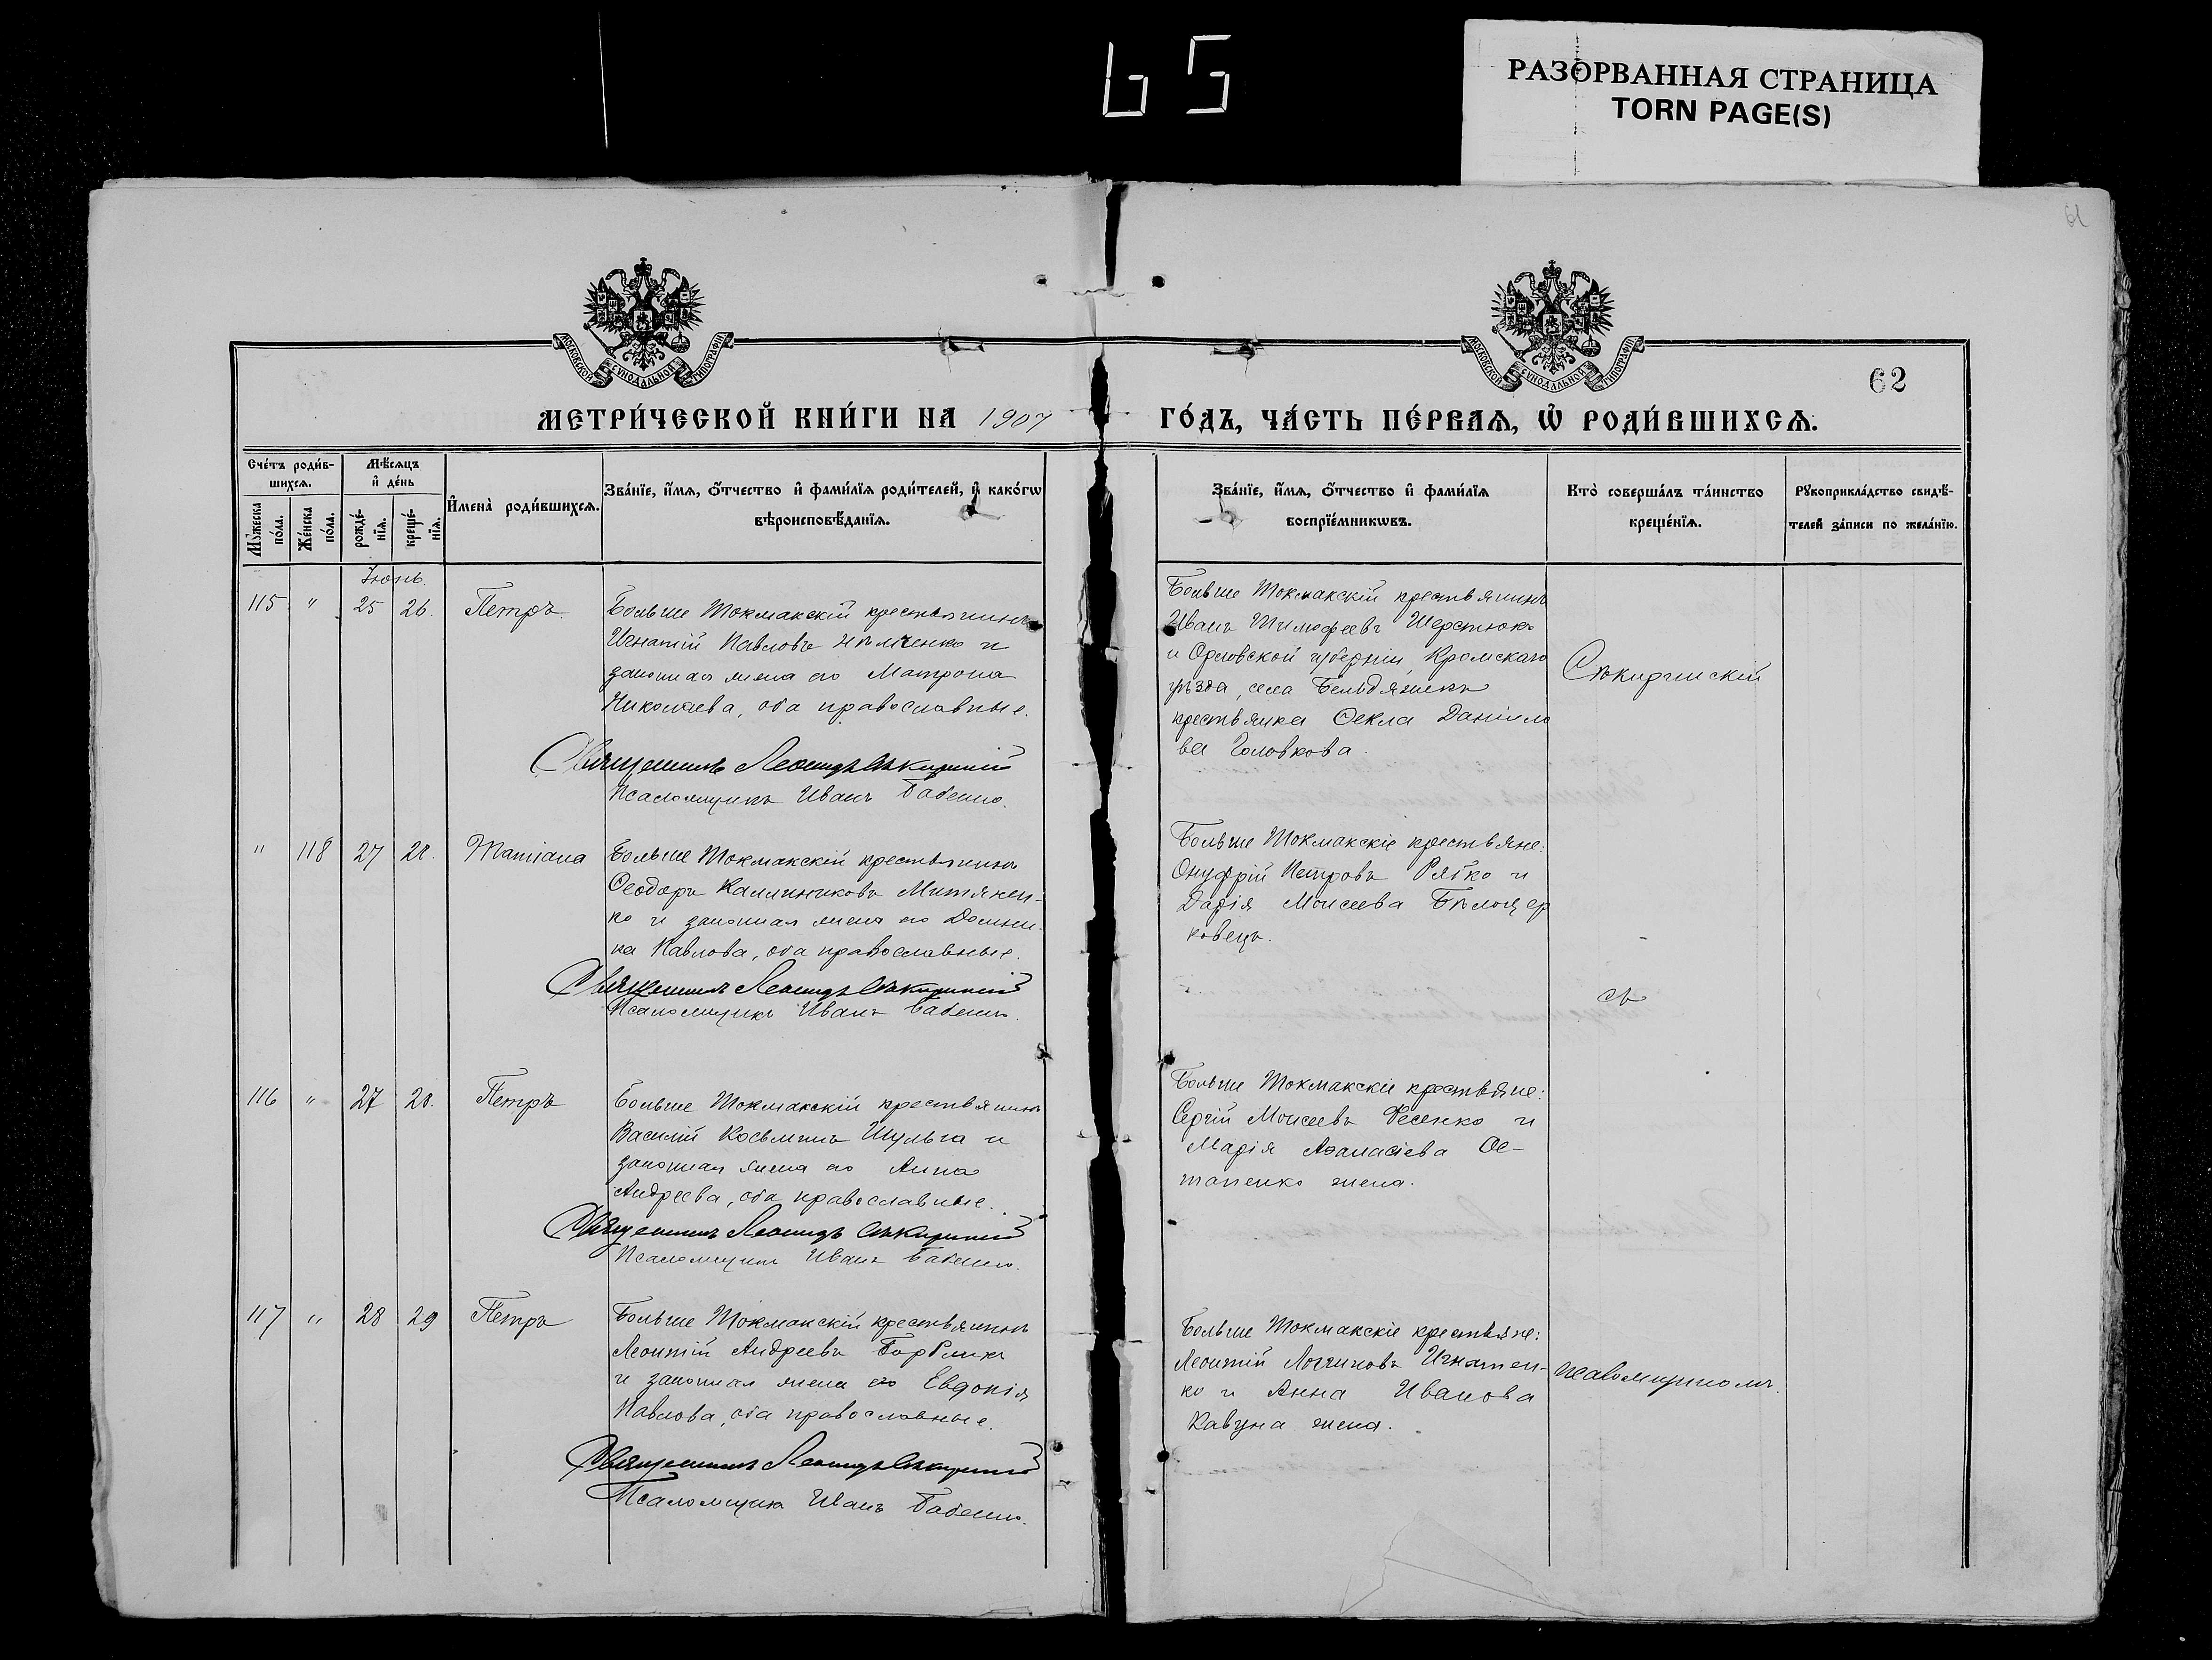 65
РАЗОРВАННАЯ СТРАНИЦА
TORN PAGE(S)
61
МОСКОВСКОЙ СѴНОДАЛЬНОЙ ТИПОГРАФІИ
МОСКОВСКОЙ СѴНОДАЛЬНОЙ ТИПОГРАФІИ
62
МЕТРИ́ЧЕСКОЙ КНИ́ГИ НА 1907
ГО́ДЪ, ЧА́СТЬ ПЕ́РВАѦ, Ѡ҆ РОДИ́ВШИХСѦ.
Сче́тъ роди́в-
шихсѧ.
Мѣ́сѧцъ
и҆ де́нь
Мꙋ́жеска по́ла.
Же́нска по́ла.
рожде́-
нїѧ.
креще́-
нїѧ.
И҆мена̀ роди́вшихсѧ.
Зва́нїе, и҆́мѧ, ѻ҆́тчество и҆ фами́лїѧ роди́телей, и҆ како́гѡ
вѣроисповѣ́данїѧ.
Зва́нїе, и҆́мѧ, ѻ҆́тчество и҆ фами́лїѧ
воспрїе́мникѡвъ.
Кто̀ соверша́лъ та́инство
креще́нїѧ.
Рꙋкоприкла́дство свидѣ́-
телей за́писи по жела́нїю.
Іюнь.
115 " 25 26. Петръ.
Больше Токмакскій крестьянинъ
Игнатій Павловъ Нѣмченко и
законная жена его Матрона
Николаева, оба православные.
Священникъ Леонидъ Сѣкиринскій
Псаломщикъ Иванъ Бабенко.
Больше Токмакскій крестьянинъ
Иванъ Тимофеевъ Шерстюкъ
и Орловской губерніи, Кромскаго
уѣзда, села Бельдяжекъ
крестьянка Ѳекла Данiило
ва Головкова.
Сѣкиринскій
" 118 27 28. Татіана
Больше Токмакскій крестьянинъ
Ѳеодоръ Каллиниковъ Митякен-
ко и законная жена его Домни-
ка Павлова, оба православные.
Священникъ Леонидъ Сѣкиринскій
Псаломщикъ Иванъ Бабенко.
Больше Токмакскіе крестьяне:
Онуфрій Петровъ Рябко и
Дарія Моисеева Бѣлоцер
ковецъ.
116 " 27 28. Петръ
Больше Токмакскій крестьянинъ
Василій Косьминъ Шульга и
законная жена его Анна
Андреева, оба православные.
Священникъ Леонидъ Сѣкиринскій
Псаломщикъ Иванъ Бабенко.
Больше Токмакскіе крестьяне:
Сергій Моисеевъ Фесенко и
Марія Аѳанасіева Ос-
тапенко жена.
117 " 28 29 Петръ
Больше Токмакскій крестьянинъ
Леонтій Андреевъ
и законная жена его Евдокія
Павлова, оба православные.
Священникъ Леонидъ Сѣкиринскій
Псаломщикъ Иванъ Бабенко.
Больше Токмакскіе крестьяне:
Леонтій Логгиновъ Игнатен-
ко и Анна Иванова
Кавуна жена.
псаломщикомъ.